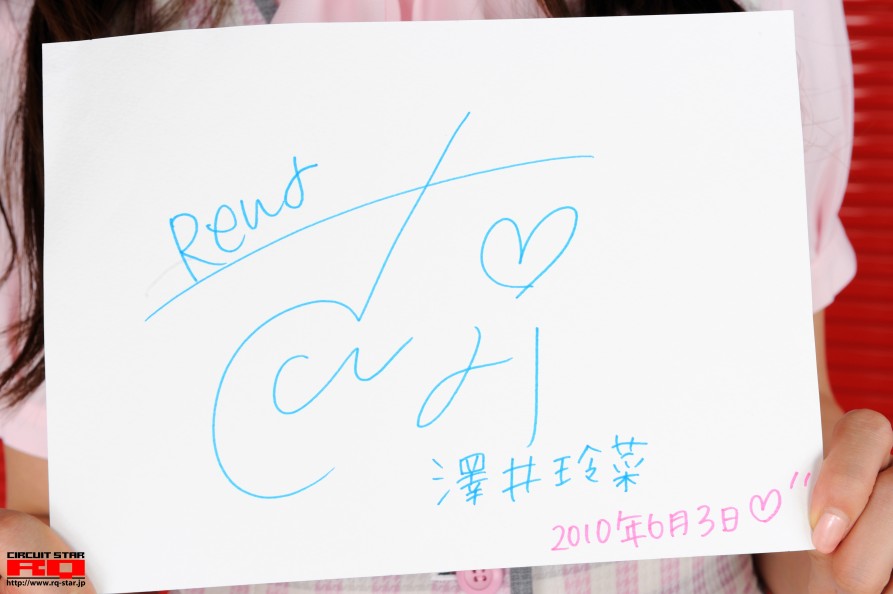 Rena
澤井玲菜
2010年6月3日♡"
CIRCUIT STAR
RQ
http://www.rq-star.jp